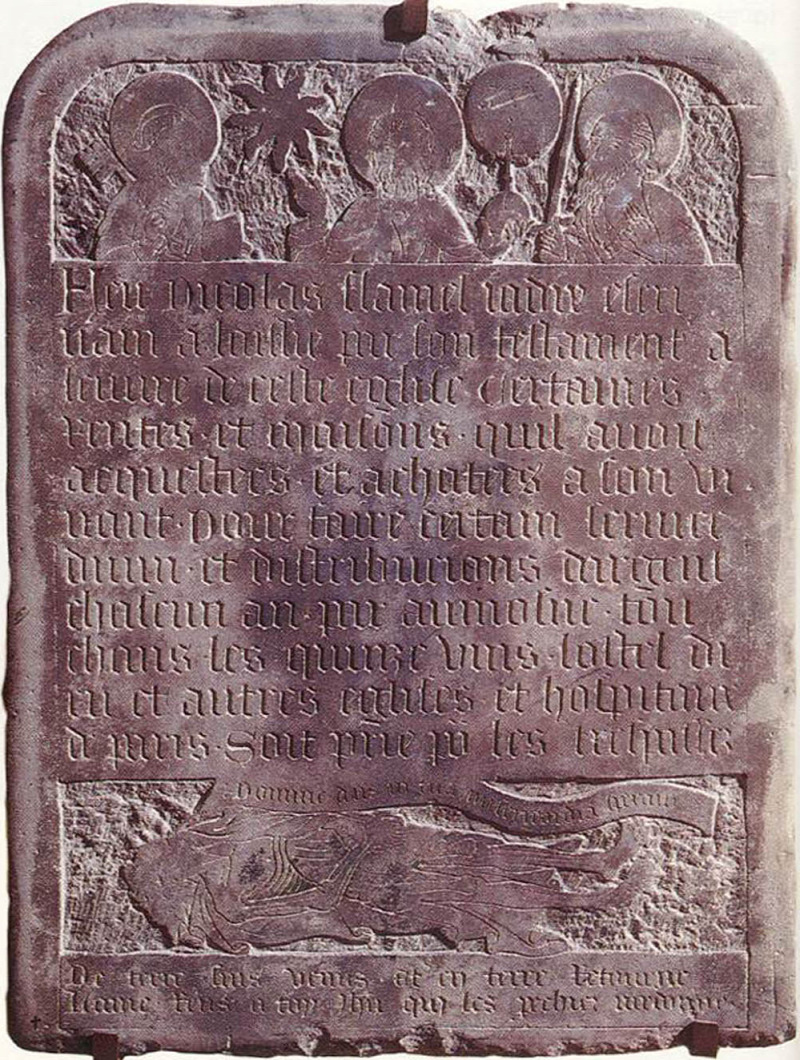 Feu nicolas flamel iadiz escri
uain a laissie par son testament a
leuure de ceste eglise certaines
rentes et maisons quil auoit
acquestees et achatees a son vi
uant pour faire certain seruice
diuin et distribucions dargent
chascun an par aumosne tou
chans les quinze vins lostel di
eu et autres eglises et hospitaux
de paris Soit prie po les trespassez
Domine deus in tua misericordia speraui
De terre suis venus et en terre retourne
lame rens a toy Jhu qui les pechiez